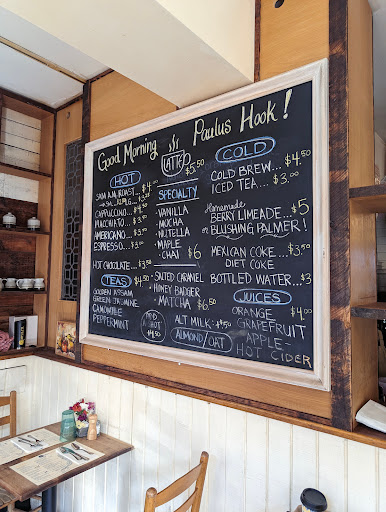 Good Morning Paulus Hook!
LATTE $5.50
HOT
CAPPUCCINO... $4.50
MACCHIATO
AMERICANO
ESPRESSO...
HOT CHOCOLATE... $4.50
TEAS
GOLDEN ASSAM
GREEN JASMINE
CAMOMILE
PEPPERMINT
SPECIALTY
· VANILLA
· MOCHA
· NUTELLA
· MAPLE
· CHAI $6
· SALTED CARAMEL
· HONEY BADGER
· MATCHA $6.50
ADD A SHOT $1.50
ALT MILK: $1.50
ALMOND/OAT
COLD
COLD BREW... $4.50
ICED TEA... $3.00
Homemade
BERRY LIMEADE... $5
or BLUSHING PALMER!
MEXICAN COKE... $3.50
DIET COKE
BOTTLED WATER... $3
JUICES
ORANGE $4.00
GRAPEFRUIT
APPLE-
HOT CIDER